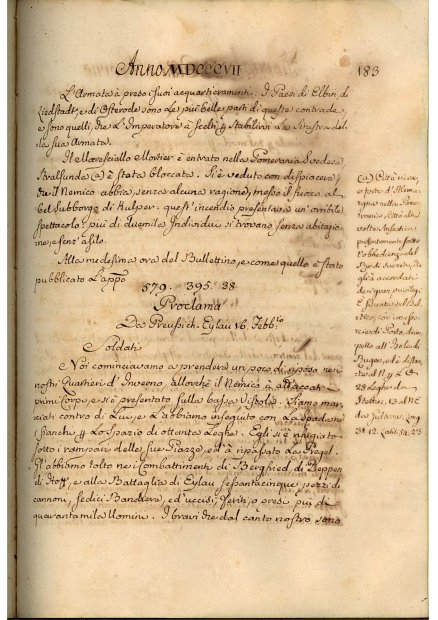 Anno MDCCCVII
183
L'Armata à preso i suoi acquartieramenti. I Paesi di Elbin, di
Liedstadt, e di Osterode sono le più belle parti di queste contrade,
e sono quelli, che L'Imperatore à scelti p stabilirvi La sinistra del-
la sua Armata.
Il Maresciallo Mortier è entrato nella Pomerania Svedese
Stralsunda (a) è stata bloccata. Si è veduto con dispiacere,
che il Nemico abbia, senza alcuna ragione, messo il fuoco al
bel Subborgo di Kulper: quest'incendio presentava un'orribile
spettacolo: più di duemila Individui si trovano senza abitazio-
ne, e senz'asilo.
Alla medesima ora del Bullettino, e come quello è stato
pubblicato L'appo
579. 395. 38.
Proclama
Da Preussich-Eylau 16. Febb.ro
Soldati
Noi cominciavamo a prendere un poco di riposo nei
nostri Quartieri d'Inverno, allorchè il Nemico à attaccato il
primo Corpo, e si è presentato sulla bassa Vistola. Siamo mar-
ciati contro di Lui, e L'abbiamo inseguito con La Spada ne'
fianchi p Lo spazio di ottanta Leghe. Egli si è rifugiato
sotto i rampari delle sue Piazze, ed à ripassato La Pregel.
Gl'abbiamo tolto nei Combattimenti di Bergfried, di Deppen
di Hoff, e alla Battaglia di Eylau sessantacinque pezzi di
cannoni, sedici Bandiere, ed uccisi, feriti, o presi più di
quarantamila Uomini. I bravi che dal canto nostro sono
(a) Città ricca,
e forte d'Alema-
gna nella Pome-
rania, Città altre
volte Anseatica
presentemente sotto
l'obbedienza del
Rè di Svezia, che
gli à accordati
de' gran privilegj.
È situata sul Bal-
tico, con
Porto, dirim-
petto all'Isola di
Rugen, ed è dis-
tante
28 Leghe da
Stetin,
Long.
31. 12. Lat. 54. 23